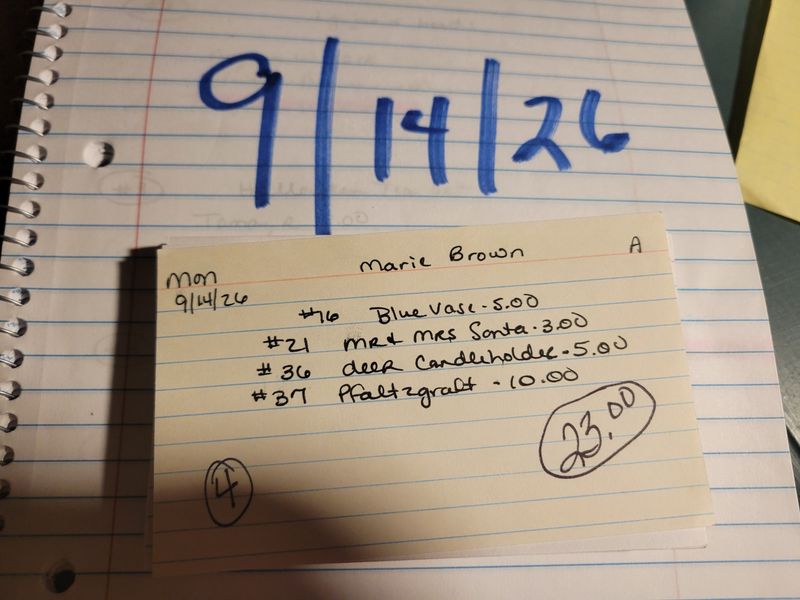 9/14/26
Marie Brown
A
Mon
9/14/26
#16 Blue Vase - 5.00
#21 MR & MRS Santa - 3.00
#36 deer Candleholder - 5.00
#37 Pfaltzgraft - 10.00
23.00
4